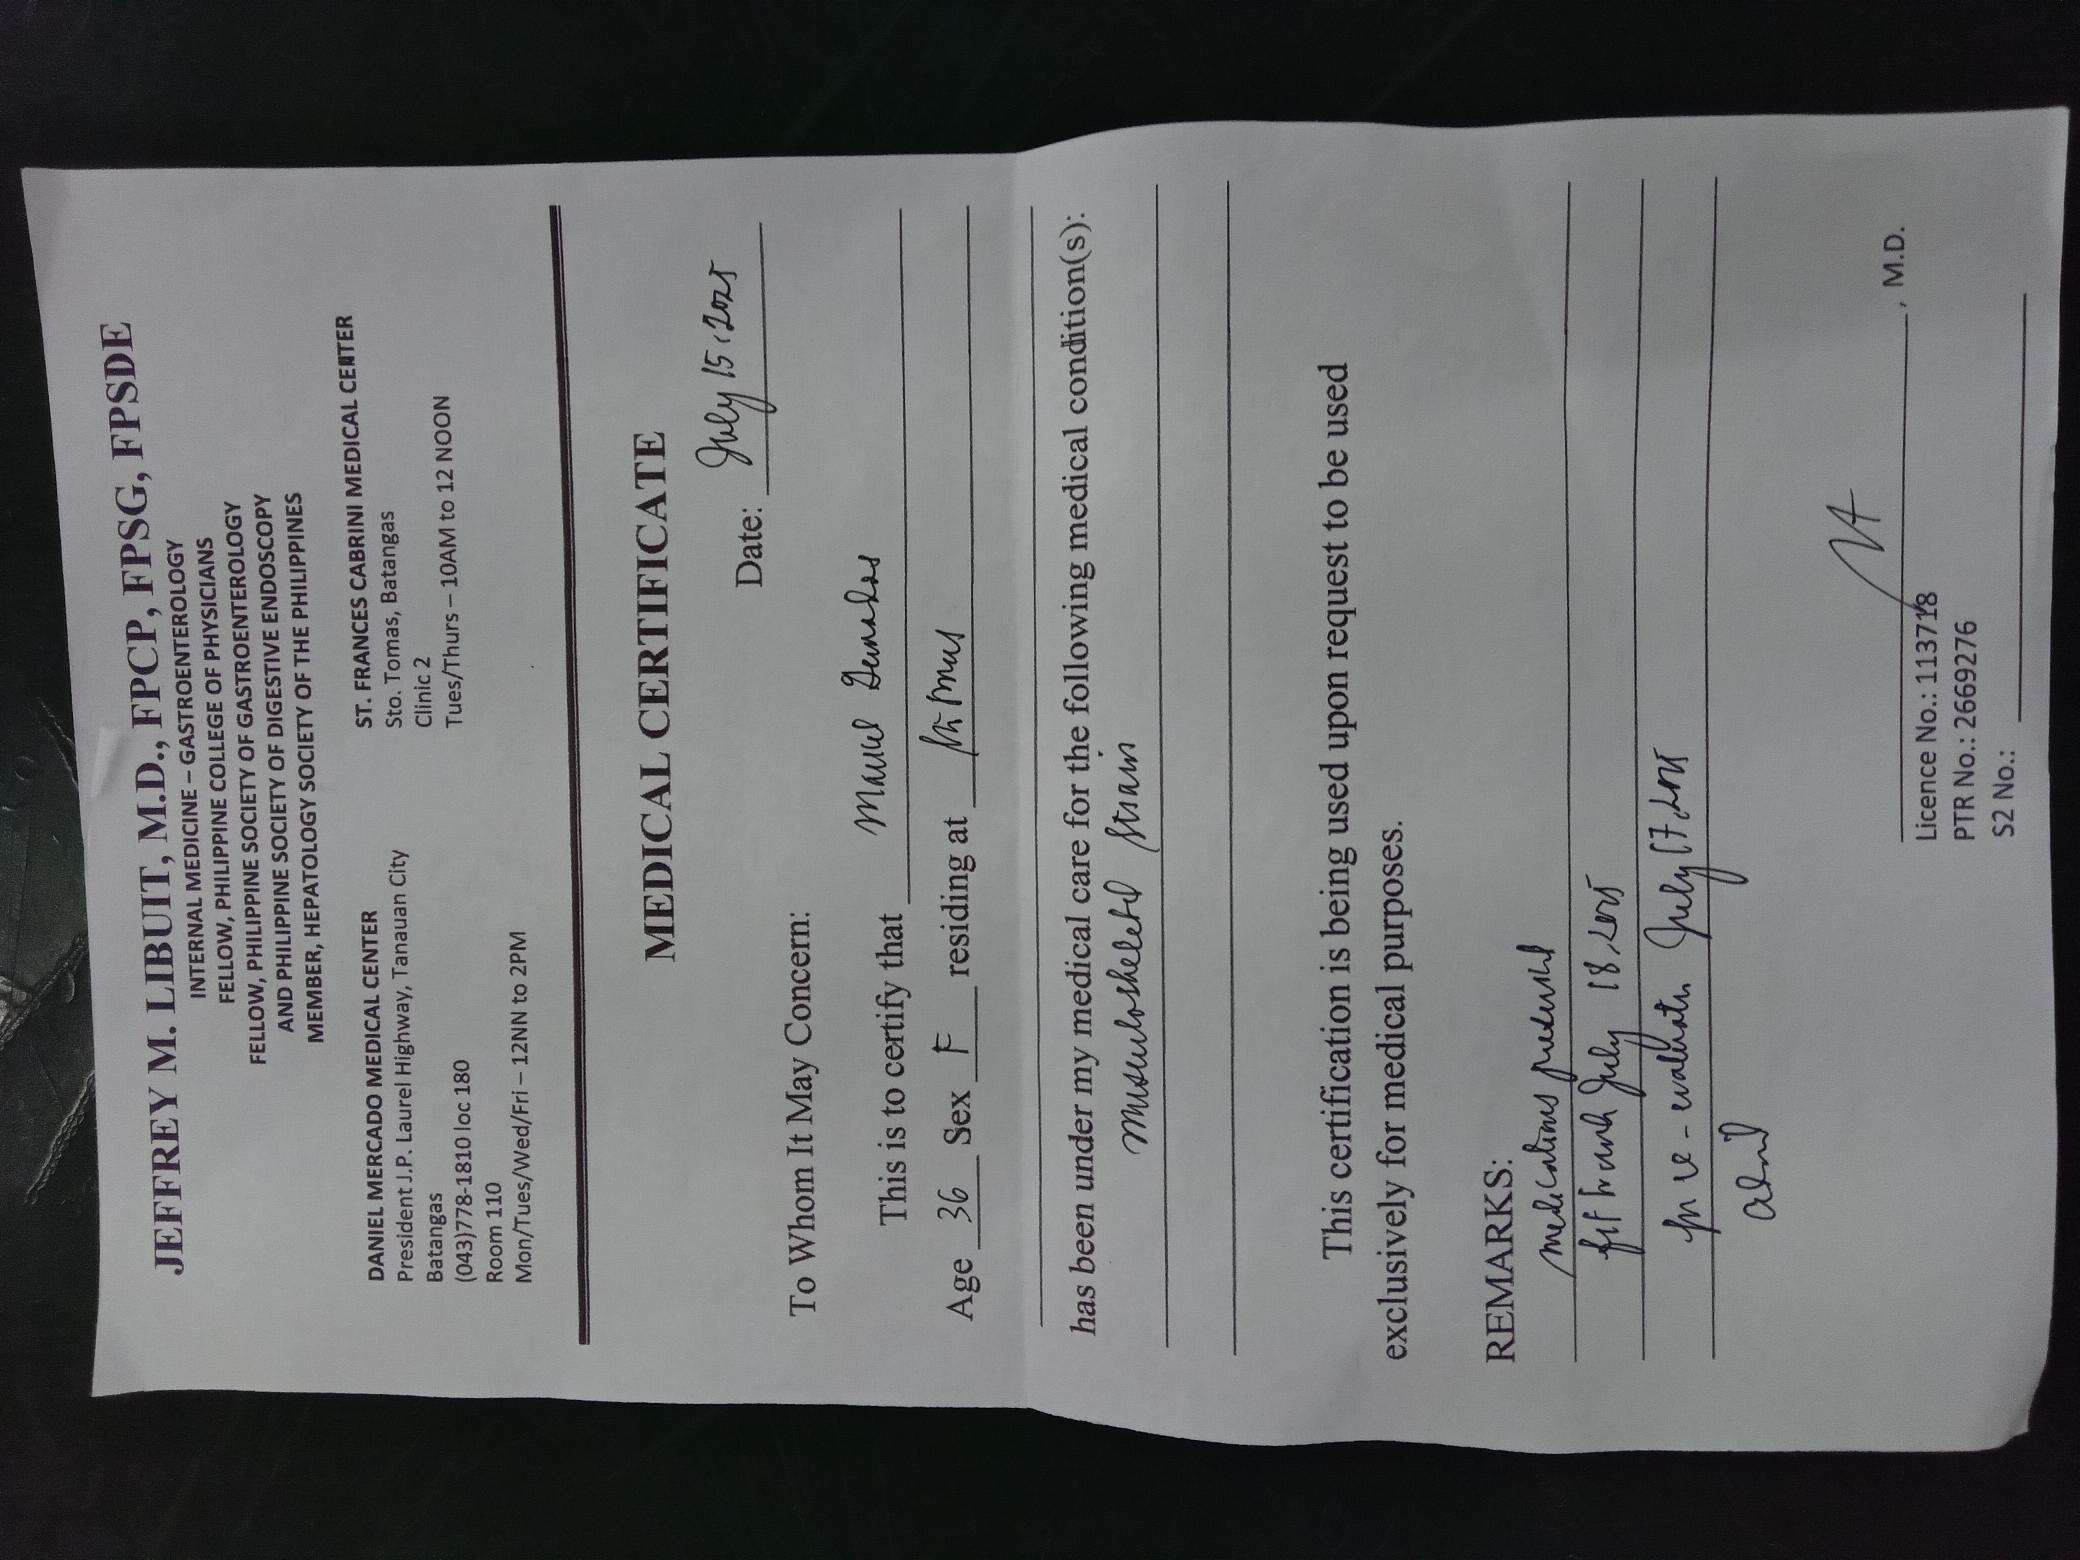 JEFFREY M. LIBUIT, M.D., FPCP, FPSG, FPSDE
INTERNAL MEDICINE – GASTROENTEROLOGY
FELLOW, PHILIPPINE COLLEGE OF PHYSICIANS
FELLOW, PHILIPPINE SOCIETY OF GASTROENTEROLOGY
AND PHILIPPINE SOCIETY OF DIGESTIVE ENDOSCOPY
MEMBER, HEPATOLOGY SOCIETY OF THE PHILIPPINES
DANIEL MERCADO MEDICAL CENTER
President J.P. Laurel Highway, Tanauan City
Batangas
(043)778-1810 loc 180
Room 110
Mon/Tues/Wed/Fri – 12NN to 2PM
ST. FRANCES CABRINI MEDICAL CENTER
Sto. Tomas, Batangas
Clinic 2
Tues/Thurs – 10AM to 12 NOON
MEDICAL CERTIFICATE
Date: July 15, 2025
To Whom It May Concern:
This is to certify that
Age 36 Sex F residing at
has been under my medical care for the following medical condition(s):
musculoskeletal strain
This certification is being used upon request to be used
exclusively for medical purposes.
REMARKS:
medications prescribed
fit to work July 18, 2025
for re-evaluation July 17, 2025
, M.D.
Licence No.: 113718
PTR No.: 2669276
S2 No.: